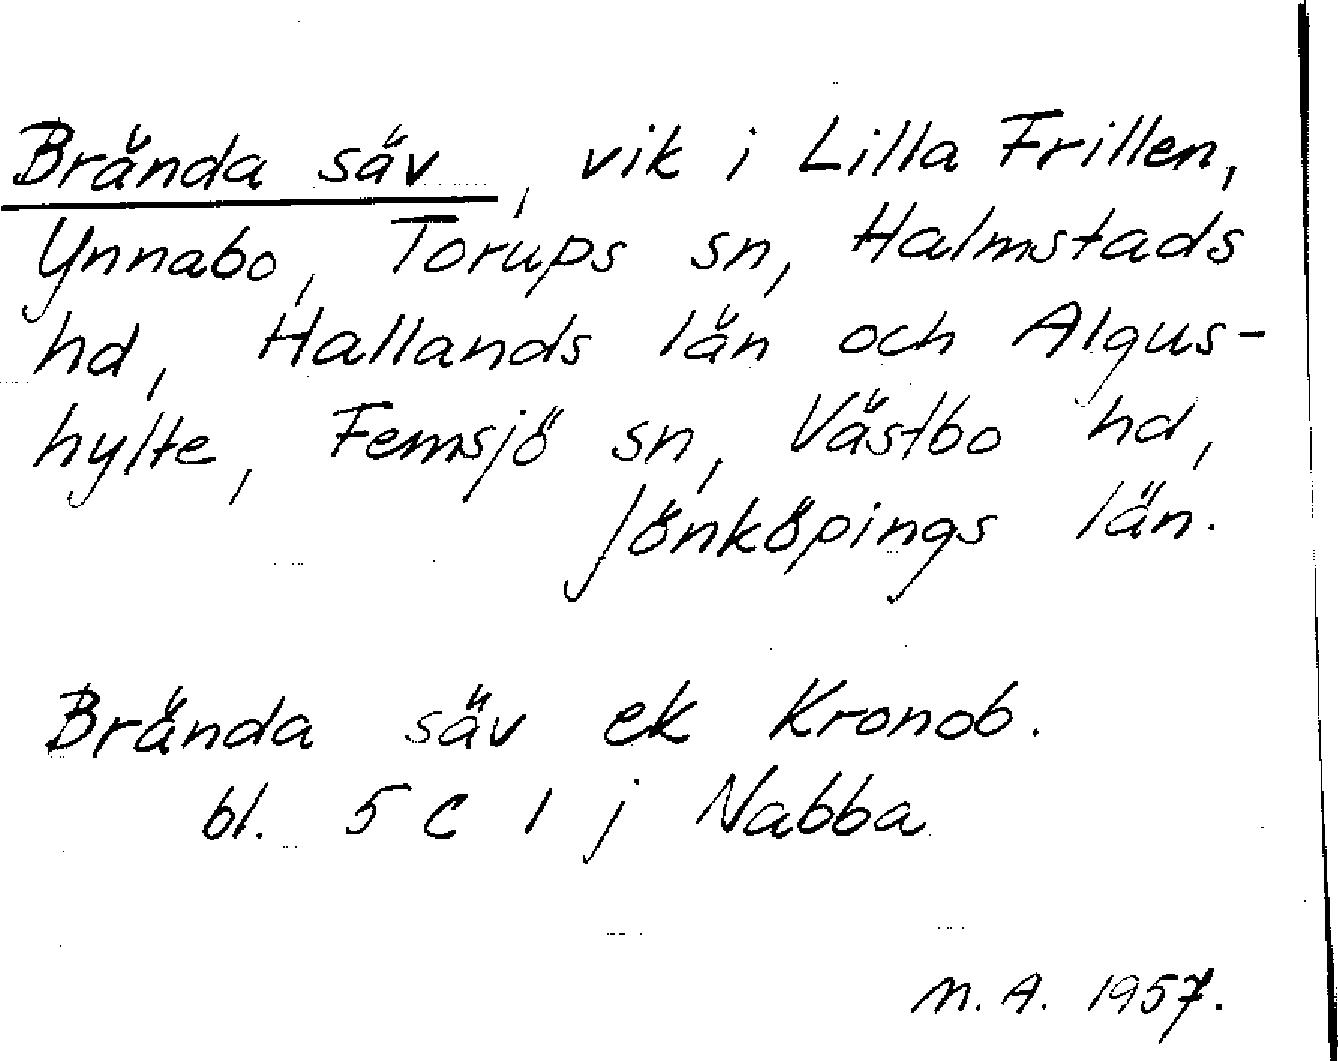 Brända säv, vik i Lilla Frillen,
Ynnabo, Torups sn, Halmstads
hd, Hallands län och Algus-
hylte, Femsjö sn, Västbo hd,
Jönköpings län.
Brända säv ek Kronob.
bl. 5 C 1 j Nabba
M. A. 1957.